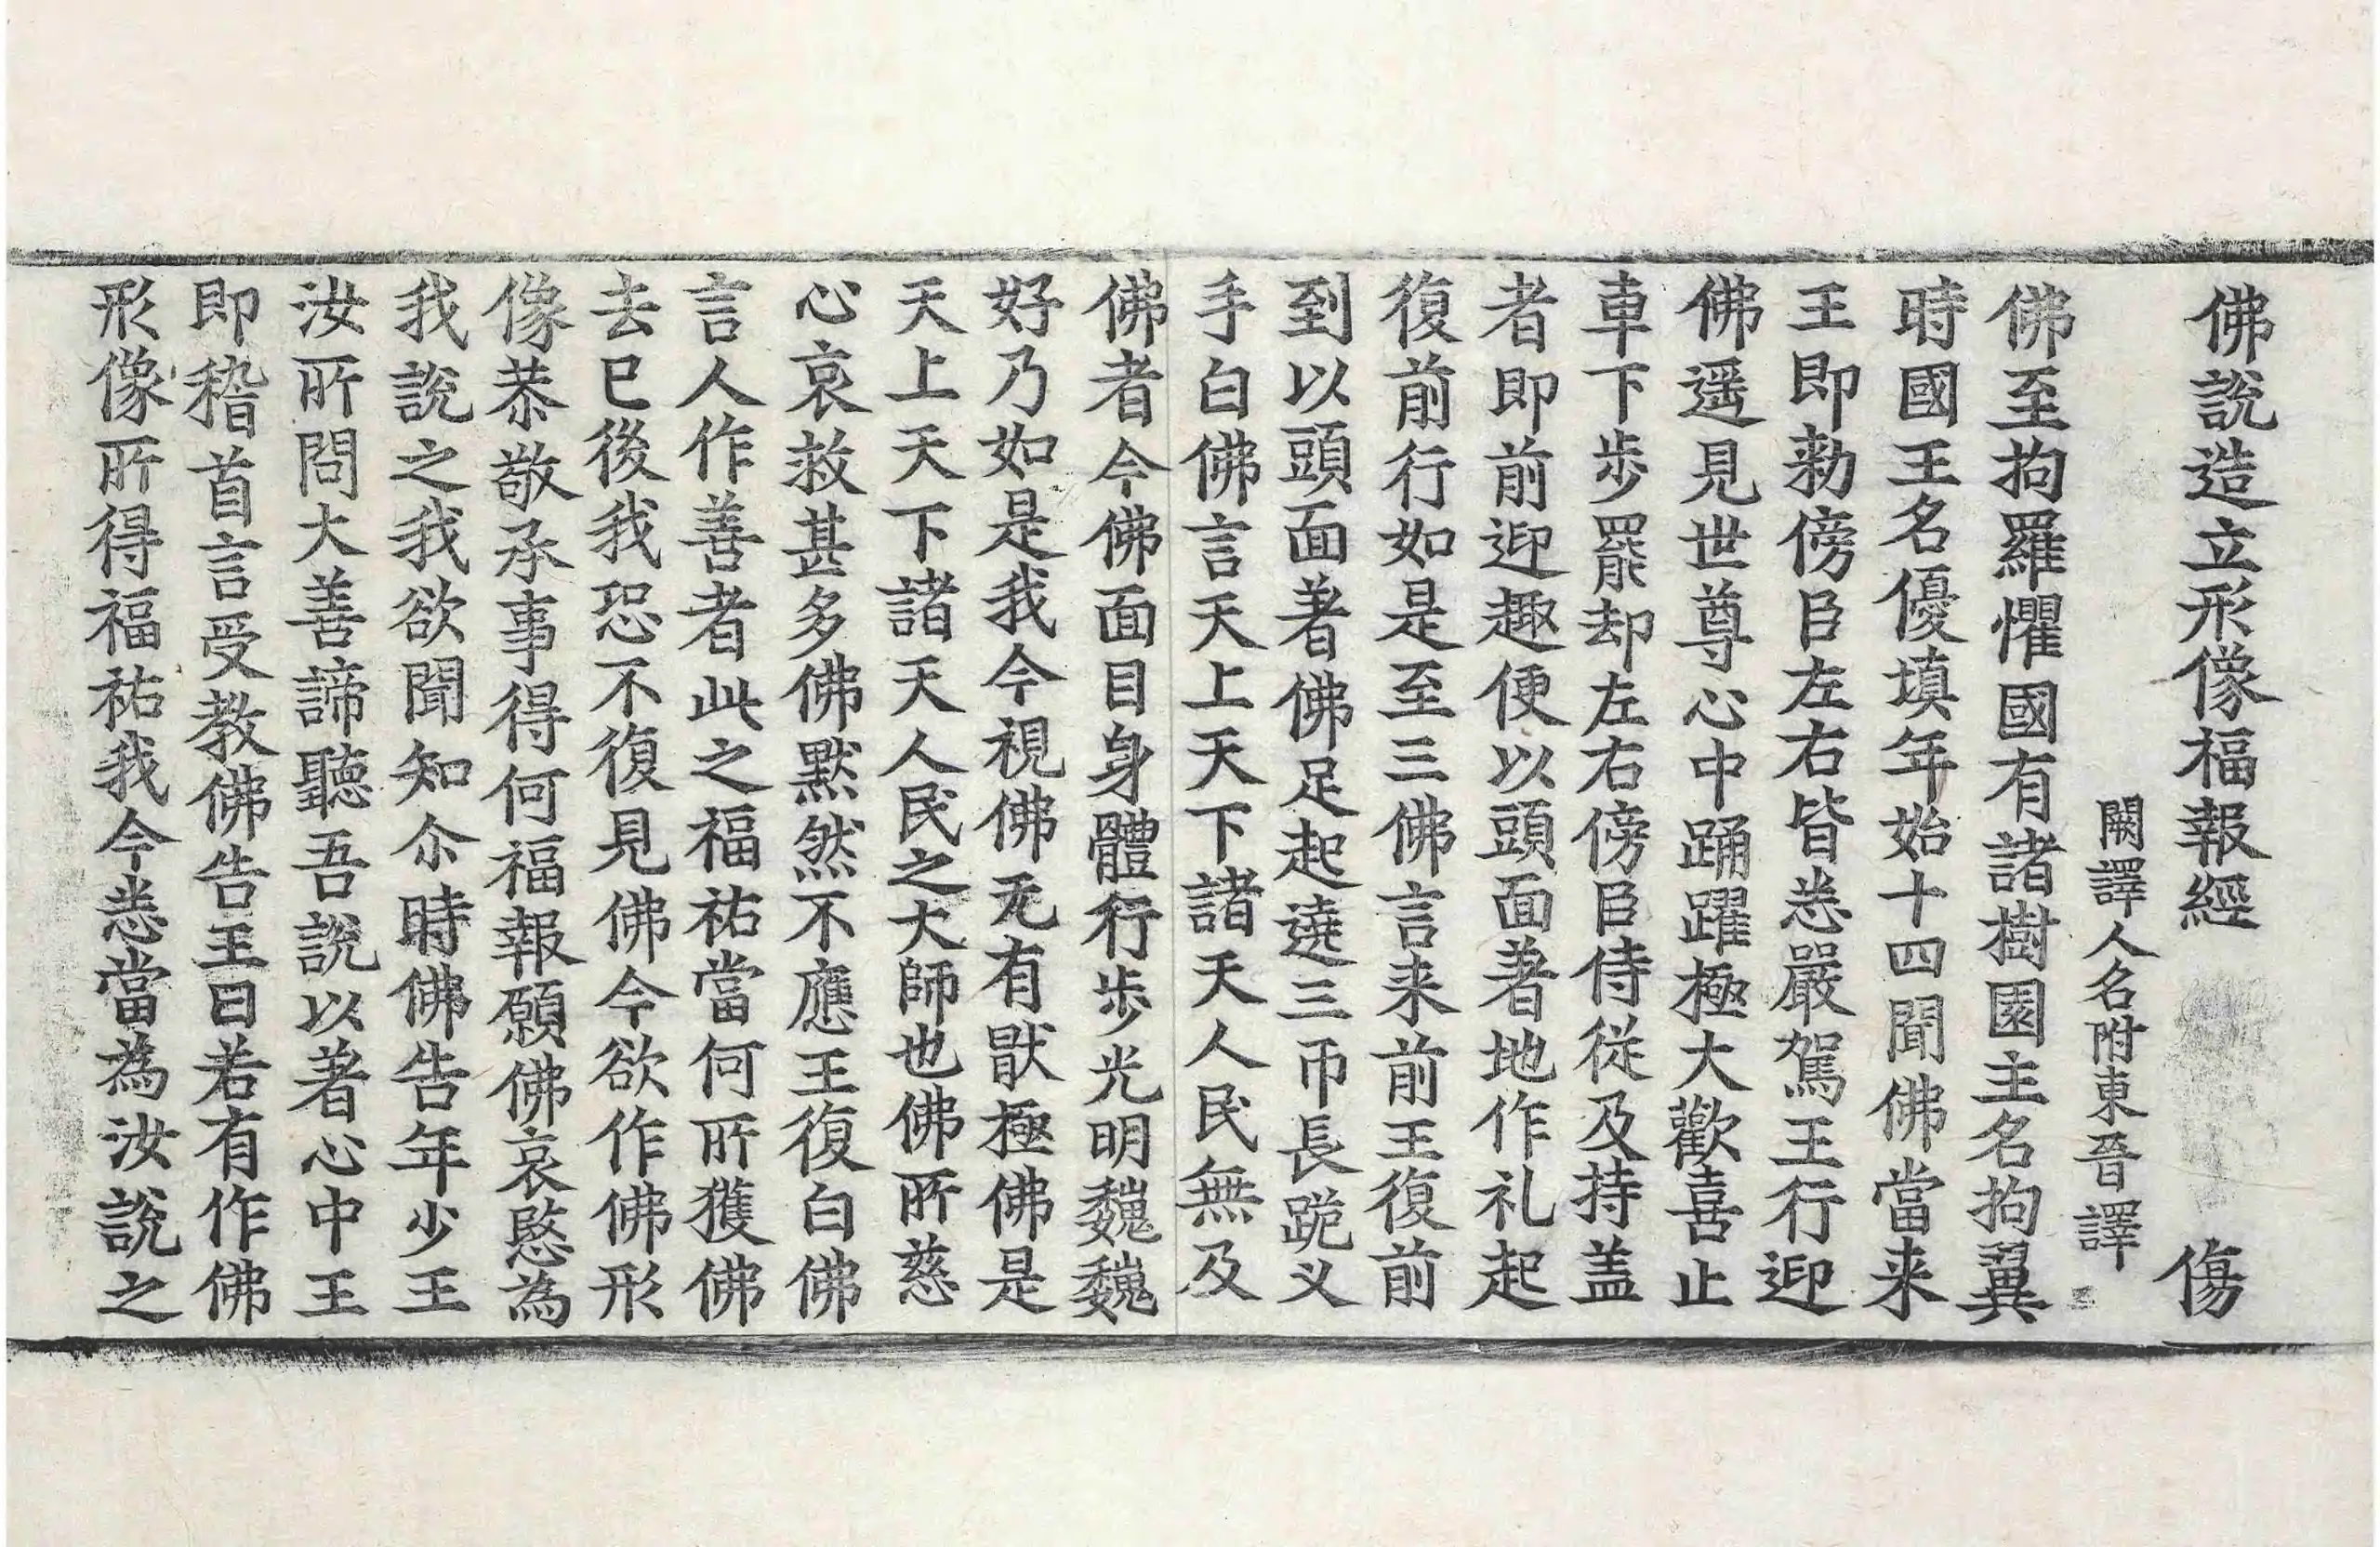 佛說造立形像福報經 傷
闕譯人名附東晉譯
佛至拘羅懼國有諸樹園主名拘翼
時國王名優填年始十四聞佛當来
王即勑傍臣左右皆悉嚴駕王行迎
佛遥見世尊心中踊躍極大歡喜止
車下歩罷却左右傍臣侍従及持盖
者即前迎趣便以頭面著地作礼起
復前行如是至三佛言来前王復前
到以頭面著佛足起遶三帀長跪义
手白佛言天上天下諸天人民無及
佛者今佛面目身體行歩光明巍巍
好乃如是我今視佛无有猒極佛是
天上天下諸天人民之大師也佛所慈
心哀救甚多佛默然不應王復白佛
言人作善者此之福祐當何所獲佛
去已後我恐不復見佛今欲作佛形
像恭敬承事得何福報願佛哀愍為
我說之我欲聞知尒時佛告年少王
汝所問大善諦聽吾說以著心中王
即稽首言受教佛告王曰若有作佛
形像所得福祐我今悉當為汝說之